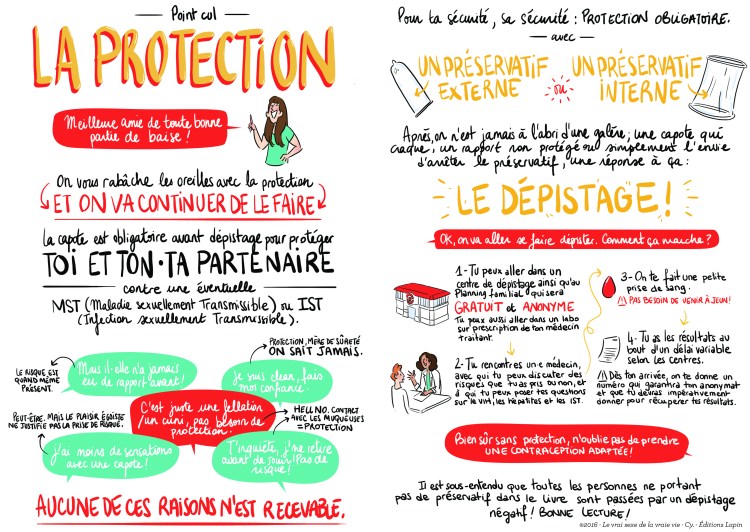 Point cul
LA PROTECTION
Meilleure amie de toute bonne
partie de baise !
On vous rabâche les oreilles avec la protection
ET ON VA CONTINUER DE LE FAIRE
la capote est obligatoire avant dépistage pour protéger
TOI ET TON·TA PARTENAIRE
contre une éventuelle
MST (Maladie sexuellement Transmissible) ou IST
(Infection sexuellement Transmissible).
PROTECTION, MÈRE DE SÛRETÉ
ON SAIT JAMAIS.
LE RISQUE EST
QUAND MÊME
PRÉSENT.
Mais il·elle n'a jamais
eu de rapport avant !
Je suis clean, fais
moi confiance.
C'est juste une fellation
/un cuni, pas besoin de
protection.
HELL NO. CONTACT
AVEC LES MUQUEUSES
=PROTECTION
PEUT-ÊTRE, MAIS LE PLAISIR ÉGOÏSTE
NE JUSTIFIE PAS LA PRISE DE RISQUE.
j'ai moins de sensations
avec une capote !
T'inquiète, j'me retire
avant de jouir ! Pas de
risque !
AUCUNE DE CES RAISONS N'EST RECEVABLE.
Pour ta sécurité, sa sécurité : PROTECTION OBLIGATOIRE.
avec
UN PRÉSERVATIF
EXTERNE
ou
UN PRÉSERVATIF
INTERNE
Après, on n'est jamais à l'abri d'une galère ; une capote qui
craque, un rapport non protégé ou simplement l'envie
d'arrêter le préservatif, une réponse à ça :
LE DÉPISTAGE !
OK, on va aller se faire dépister. Comment ça marche ?
1- Tu peux aller dans un
centre de dépistage ainsi qu'au
Planning familial qui sera
GRATUIT et ANONYME
Tu peux aussi aller dans un labo
sur prescription de ton médecin
traitant.
2- Tu rencontres un·e médecin,
avec qui tu peux discuter des
risques que tu as pris ou non, et
à qui tu peux poser tes questions
sur le VIH, les hépatites et les IST.
3- On te fait une petite
prise de sang.
/!\ PAS BESOIN DE VENIR À JEUN !
4- Tu as les résultats au
bout d'un délai variable
selon les centres.
/!\ Dès ton arrivée, on te donne un
numéro qui garantira ton anonymat
et que tu devras impérativement
donner pour récupérer tes résultats.
Bien sûr sans protection, n'oublie pas de prendre
UNE CONTRACEPTION ADAPTÉE !
Il est sous-entendu que toutes les personnes ne portant
pas de préservatif dans le livre sont passées par un dépistage
négatif ! BONNE LECTURE !
©2016 - Le vrai sexe de la vraie vie · Cy. · Éditions Lapin